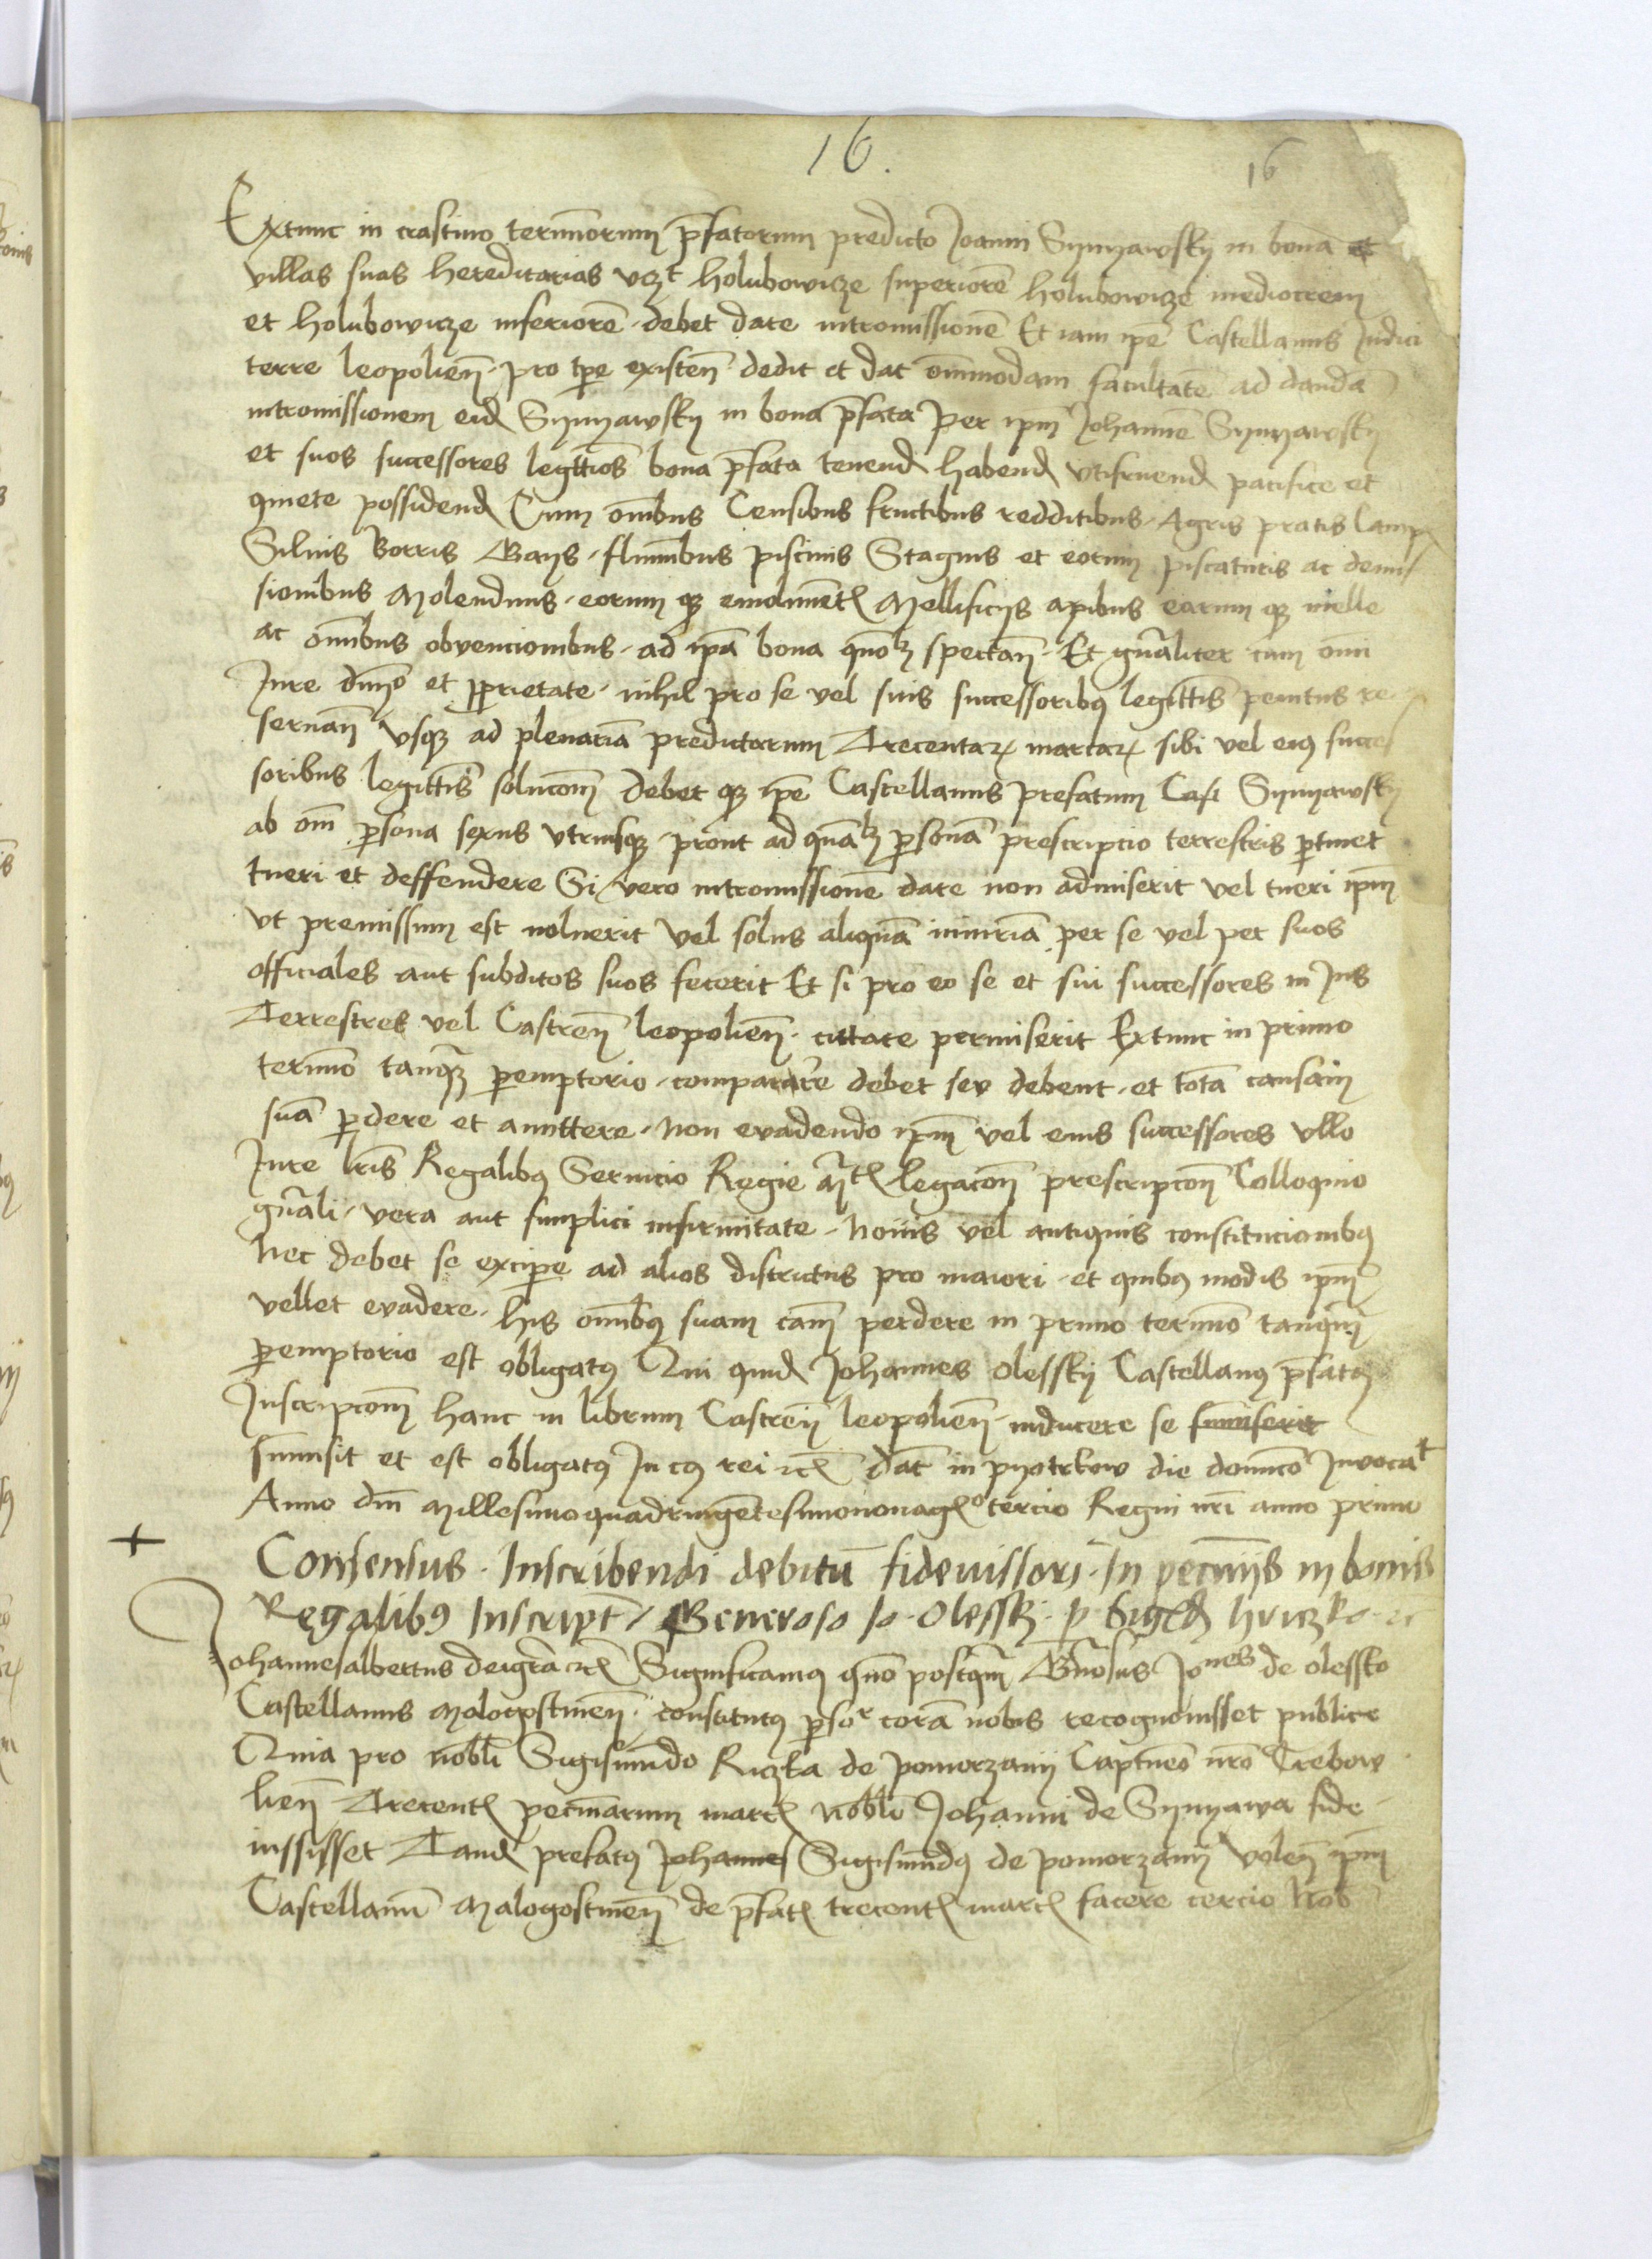 16.
16
Extunc in crastino terminorum p̄fatorum predicto Joanni Synyawsky in bona et
villas suas hereditarias vcz^t holubowicze superiorē holubowicze mediocrem
et holubowicze inferiorē debet dare intromissionē Et iam ip̄e Castellanus Judici
terre leopolien̄ pro tp̄e existen̄ dedit et dat om̄imodam facultatē ad dandā
intromissionem eid̄ Synyawsky in bona p̄fata per ip̄m Johannē Synyawsky
et suos successores legittīos bona p̄fata tenend̄ habend̄ vtifruend̄ pacifice et
quiete possidend̄ Cum om̄ibus Censibus fructibus redditibus Agris pratis Camp
Siluis Borris Gays fluminībus piscinis Stagnis et eorum piscaturis ac demis
sionibus Molendinis eorum qꝫ emolumētꝭ Mellificijs apibus earum qꝫ melle
ac om̄ibus obvencionibus ad ip̄a bona quōlꝫ spectan̄ Et gn̄aliter cum om̄i
Jure dm̄o et ꝓprietate nihil pro se vel suis successoribꝰ legittīs penitus re
seruan̄ vsqꝫ ad plenariā predictarum Trecentaꝝ marcaꝝ sibi vel eiꝰ succes
soribus legittīs solucōm̄ debet qꝫ ip̄e Castellanus prefatum Cast Synyawsky
ab om̄i ꝑsona sexus vtriusqꝫ prout ad quālꝫ ꝑsonā prescripcio terrestris ꝑtinet
tueri et deffendere Si vero intromissionē dare non admiserit vel tueri ip̄m
vt premissum est noluerit vel solus aliquā iniuriā per se vel per suos
officiales aut subditos suos fecerit Et si pro eo se et sui successores in Jus
Terrestres vel Castren̄ leopolien̄ cittare permiserit Extunc in primo
termīo tanqꝫ ꝑemptorio comparare debet sev debent et totā causam
suā ꝑdere et amittere non evadendo ip̄m vel eius successores vllo
Jure lrīs Regalibꝰ Seruicio Regie M^tꝭ legacōn̄ prescripcōn̄ Colloquio
gn̄ali vera aut simplici infirmitate nouis vel antiquis constitucionibꝰ
nec debet se excipe ad alios districtus pro maiori et quibꝰ modis ip̄m
vellet evadere his om̄ibꝰ suam cam̄ perdere in primo termīo tanqm̄
ꝑemptorio est obligatꝰ Qui quid̄ Johannes olessky Castellanꝰ p̄fatꝰ
Inscripcōm̄ hanc in librum Castren̄ leopolien̄ inducere se summiserit
summisit et est obligatꝰ In cꝰ rei etꝭ dat̄ in pyotrkow die domīco Inuocāt
Anno dnī Millesimoquadringētesimononagꝭ^o tercio Regni nrī anno primo
+ Consensus Inscribendi debitū fideiussori In pecuniis in bonis
Regalibꝰ Inscript̄ Generoso Jo olessky p Sigꝭd hriczko etc̄
Johannesalbertus deigrā etꝭ Significamꝰ quō postqm̄ Gn̄osus Jo^nes de olessko
Castellanus Malogostinen̄ constitutꝰ ꝑso^r corā nobis recognouisset publice
Quia pro nobli Sigismundo Riczka de pomorzany Captneō nrō Trebow
lien̄ Trecentꝭ pecuniarum marcꝭ nobli Johanni de Synyawa fide
iussisset Tand̄ prefatꝰ Johannes Sigismūdꝰ de pomorzany volen̄ ip̄m
Castellanū Malogostinen̄ de p̄fatꝭ trecentꝭ marcꝭ facere cercio Nob